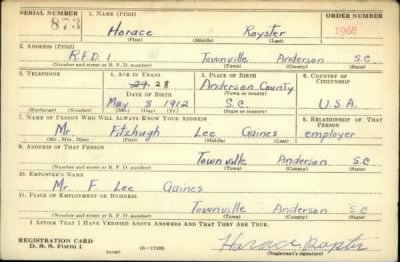 SERIAL NUMBER 1. NAME (Print) ORDER NUMBER
873 Horace Royster 1968
(First) (Middle) (Last)
2. ADDRESS (Print)
R.F.D. 1 Townville Anderson S.C
(Number and street or R. F. D. number) (Town) (County) (State)
3. TELEPHONE 4. AGE IN YEARS 5. PLACE OF BIRTH 6. COUNTRY OF CITIZENSHIP
29. 28 Anderson County
DATE OF BIRTH (Town or county)
May 8 1912 S.C U.S.A.
(Exchange) (Number) (Mo.) (Day) (Yr.) (State or country)
7. NAME OF PERSON WHO WILL ALWAYS KNOW YOUR ADDRESS 8. RELATIONSHIP OF THAT PERSON
Mr. Fitzhugh Lee Gaines employer
(Mr., Mrs., Miss) (First) (Middle) (Last)
9. ADDRESS OF THAT PERSON
Townville Anderson S.C
(Number and street or R. F. D. number) (Town) (County) (State)
10. EMPLOYER'S NAME
Mr. F. Lee Gaines
11. PLACE OF EMPLOYMENT OR BUSINESS
Townville Anderson S.C
(Number and street or R. F. D. number) (Town) (County) (State)
I AFFIRM THAT I HAVE VERIFIED ABOVE ANSWERS AND THAT THEY ARE TRUE.
REGISTRATION CARD
D. S. S. Form 1 (over) Horace Royster
(Registrant's signature)